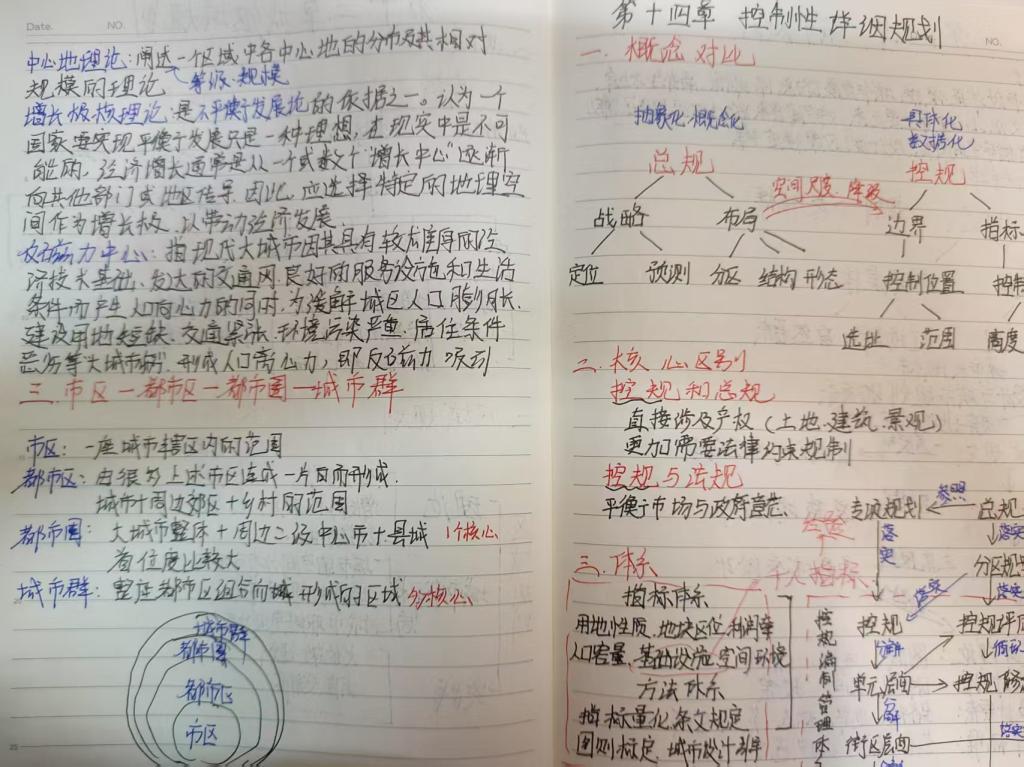 Date.
NO.
中心地理论：阐述一个区域中各中心地的分布及其相对
规模的理论
等级 规模
增长极核理论：是不平衡发展论的依据之一。认为一个
国家要实现平衡发展只是一种理想，在现实中是不可
能的，经济增长通常是从一个或数个“增长中心”逐渐
向其他部门或地区传导。因此，应选择特定的地理空
间作为增长极，以带动经济发展
反磁力中心：指现代大城市因其具有较雄厚的经
济技术基础、发达的交通网、良好的服务设施和生活
条件而产生人口向心力的同时，为缓解城区人口膨胀、
建设用地短缺、交通紧张、环境污染严重、居住条件
恶劣等大城市病，形成人口离心力，即反磁力吸引
三.市区—都市区—都市圈—城市群
市区：一座城市辖区内的范围
都市区：由很多上述市区连成一片因而形成.
城市+周边郊区+乡村的范围
都市圈：大城市整体+周边二级中心市+县城 1个核心
首位度比较大
城市群：整座都市区组合而城 形成的区域 多核心
城市群
都市圈
都市区
市区
第十四章 控制性详细规划
NO.
一.概念对比
抽象化·概念化
具体化
数据化
总规
控规
空间尺度 降级
战略
布局
边界
指标
定位
预测
分区
结构
形态
控制位置
控制
选址
范围
高度
二.核心区别
控规和总规
直接涉及产权（土地.建筑.景观）
更加需要法律约束规制
控规与法规
平衡市场与政府意志
专项规划
参照
总规
落实
落实
分区规划
三.体系
个人指标
指标体系
用地性质.地块区位.利用率
人口容量、基础设施.空间环境
方法体系
指标量化.条文规定
图则标定、城市设计引导
控规编制管理体
落实
落实
控规
分解
单元层面
分解
街区层面
控规详
控规修
落实